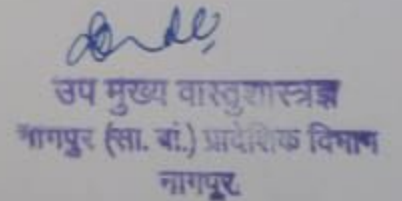 उप मुख्य वास्तुशास्त्रज्ञ
नागपुर (सा. बां.) प्रादेशिक विभाग
नागपूर.